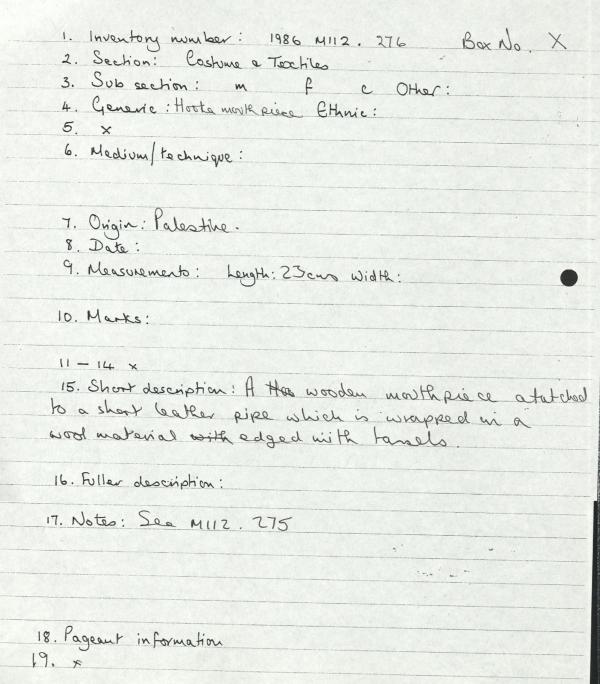 1. Inventory number: 1986 M112. 276 Box No. X
2. Section: Costume & Textiles
3. Sub section: m f c Other:
4. Generic: Hooka mouth piece Ethnic:
5. x
6. Medium/technique:
7. Origin: Palestine.
8. Date:
9. Measurements: Length: 23cms Width:
10. Marks:
11 - 14 x
15. Short description: A wooden mouthpiece atatched
to a short leather pipe which is wrapped in a
wool material with edged with tassels.
16. Fuller description:
17. Notes: See M112. 275
18. Pageant information
19. x